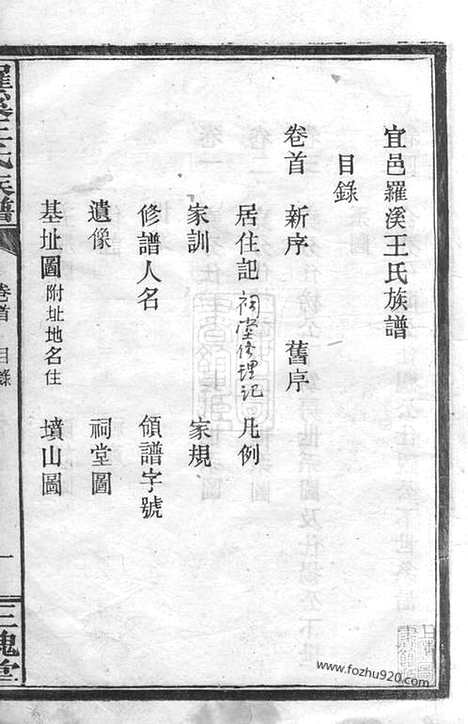 宜邑羅溪王氏族譜
目錄
卷首 新序 舊序
居住記 祠堂修理記 凡例
家訓 家規
修譜人名 領譜字號
遺像 祠堂圖
基址圖附址地名住 墳山圖
羅溪王氏族譜 卷首 目錄 一 三槐堂
www.fozhu920.com